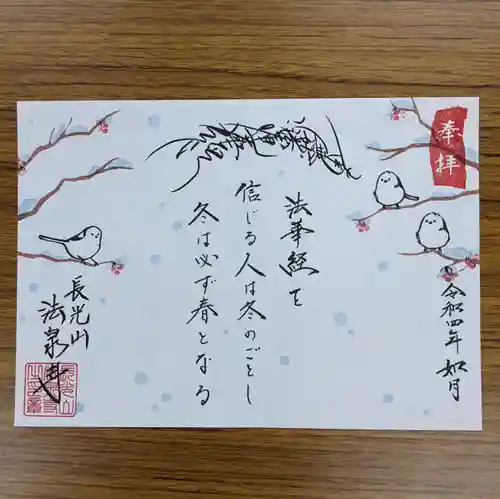 奉拝
令和四年 如月
法華経を
信じる人は冬のごとし
冬は必ず春となる
長光山
法泉寺